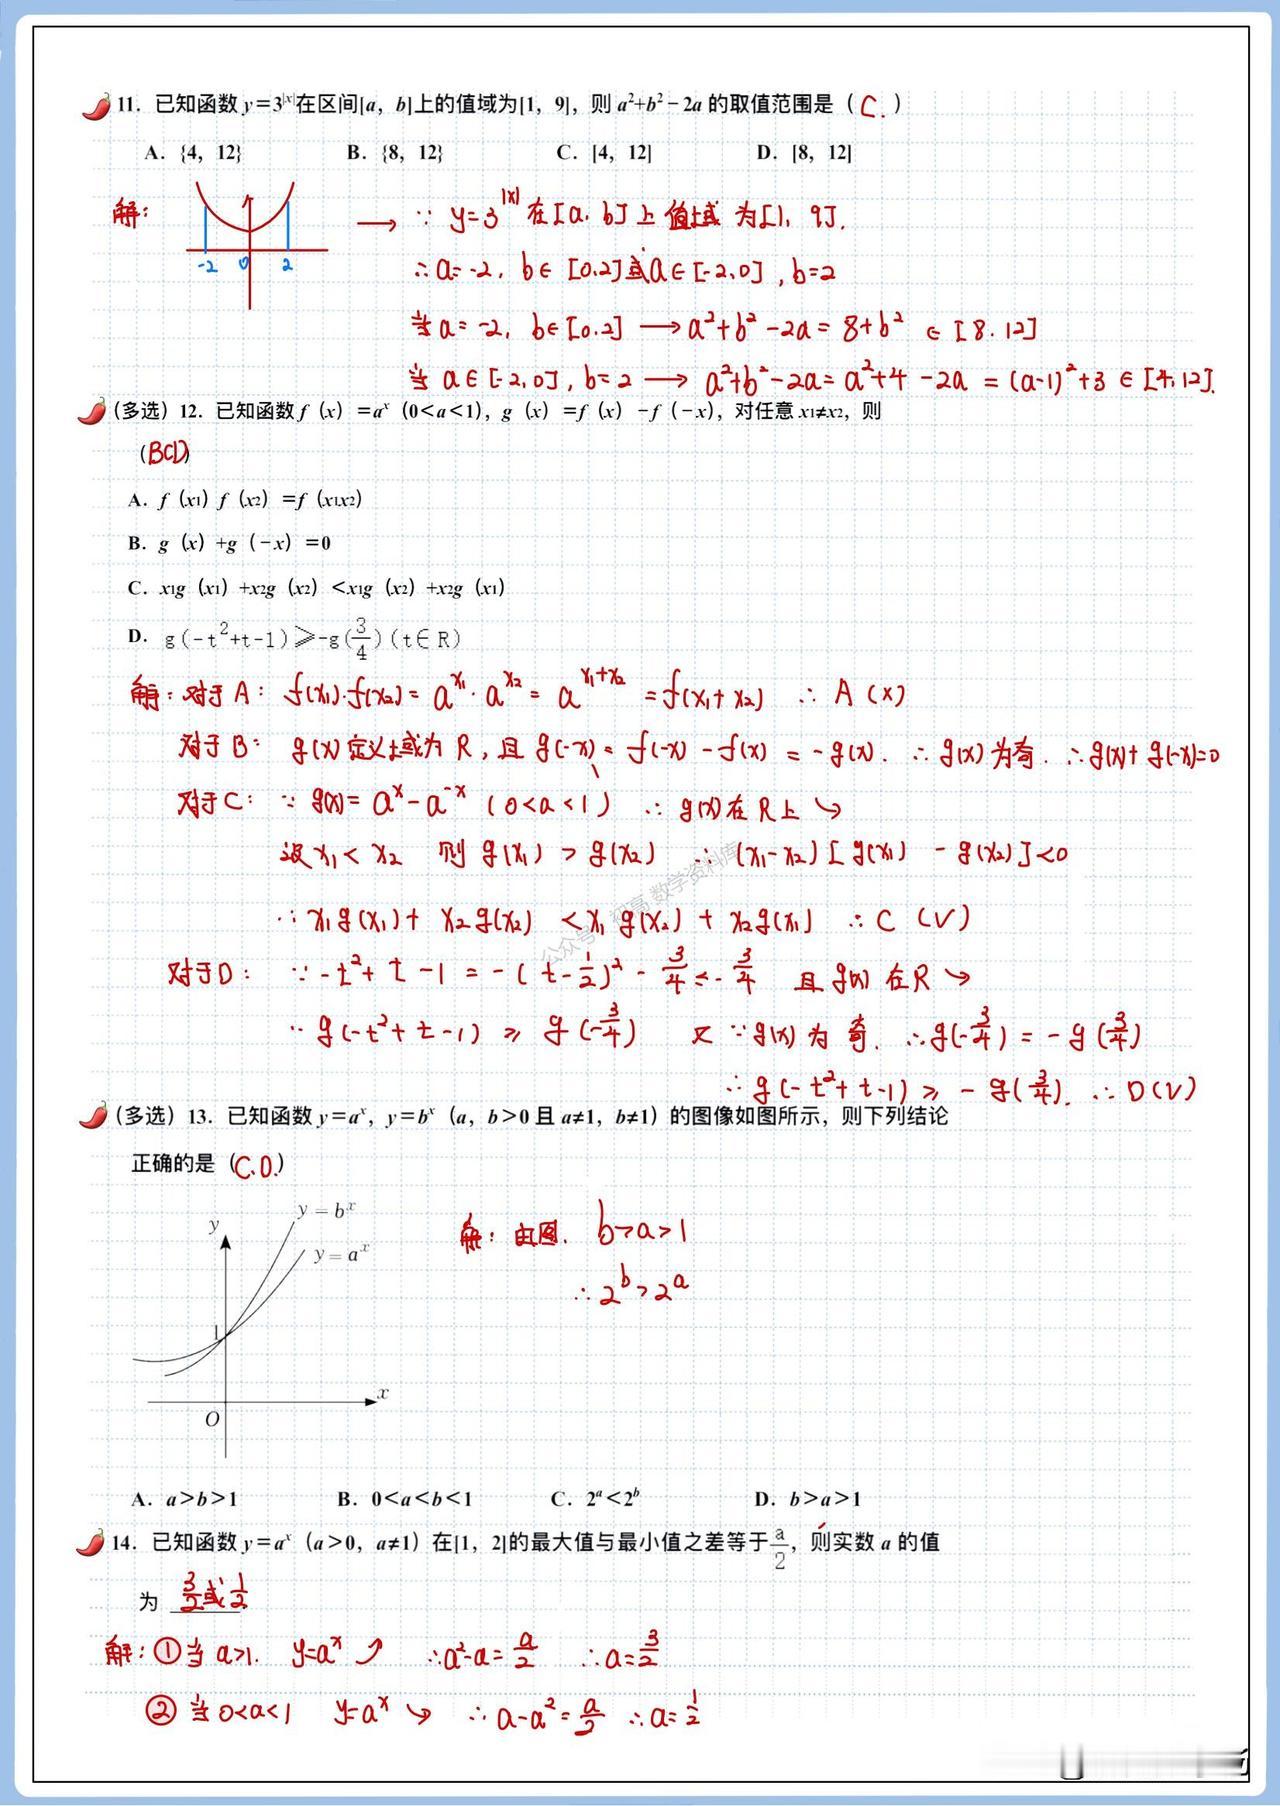 11. 已知函数 y=3^|x| 在区间[a, b]上的值域为[1, 9], 则 a²+b²-2a 的取值范围是 ( C. )
A. {4, 12}  B. {8, 12}  C. [4, 12]  D. [8, 12]
解: → ∵ y=3^|x| 在[a, b]上值域为[1, 9].
-2 0 2
∴ a=-2, b∈[0,2]或a∈[-2,0], b=2
当a=-2, b∈[0,2] → a²+b²-2a=8+b² ∈[8,12]
当 a∈[-2,0], b=2 → a²+b²-2a=a²+4-2a=(a-1)²+3∈[4,12].
(多选) 12. 已知函数 f (x) =aˣ (0<a<1), g (x) =f (x) -f (-x), 对任意 x₁≠x₂, 则
(BCD)
A. f (x₁) f (x₂) =f (x₁x₂)
B. g (x) +g (-x) =0
C. x₁g (x₁) +x₂g (x₂) <x₁g (x₂) +x₂g (x₁)
D. g(-t²+t-1)⩾-g(3/4)(t∈R)
解: 对于A: f(x₁)·f(x₂)=a^x₁·a^x₂=a^(x₁+x₂)=f(x₁+x₂) ∴ A (×)
对于B: g(x)定义域为R, 且 g(-x)=f(-x)-f(x)=-g(x). ∴ g(x)为奇. ∴g(x)+g(-x)=0
对于C: ∵ g(x)=aˣ-a⁻ˣ (0<a<1) ∴ g(x)在R上↘
设x₁<x₂ 则 g(x₁)>g(x₂) ∴ (x₁-x₂)[g(x₁)-g(x₂)]<0
∴ x₁g(x₁)+x₂g(x₂)<x₁g(x₂)+x₂g(x₁) ∴ C (√)
公众号: 初高数学资料库
对于D: ∵ -t²+t-1=-(t-1/2)²-3/4≤-3/4 且 g(x)在R↘
∴ g(-t²+t-1)≥g(-3/4) 又∵g(x)为奇. ∴g(-3/4)=-g(3/4)
∴ g(-t²+t-1)≥-g(3/4). ∴ D(√)
(多选) 13. 已知函数 y=aˣ, y=bˣ (a, b>0 且 a≠1, b≠1) 的图像如图所示, 则下列结论
正确的是 (C.D.)
y y=bˣ
y=aˣ
1
x
O
解: 由图. b>a>1
∴ 2ᵇ>2ᵃ
A. a>b>1  B. 0<a<b<1  C. 2ᵃ<2ᵇ  D. b>a>1
14. 已知函数 y=aˣ (a>0, a≠1) 在[1, 2]的最大值与最小值之差等于a/2, 则实数 a 的值
为 3/2或1/2
解: ①当a>1. y=aˣ↗ ∴a²-a=a/2 ∴a=3/2
②当0<a<1 y=aˣ↘ ∴a-a²=a/2 ∴a=1/2